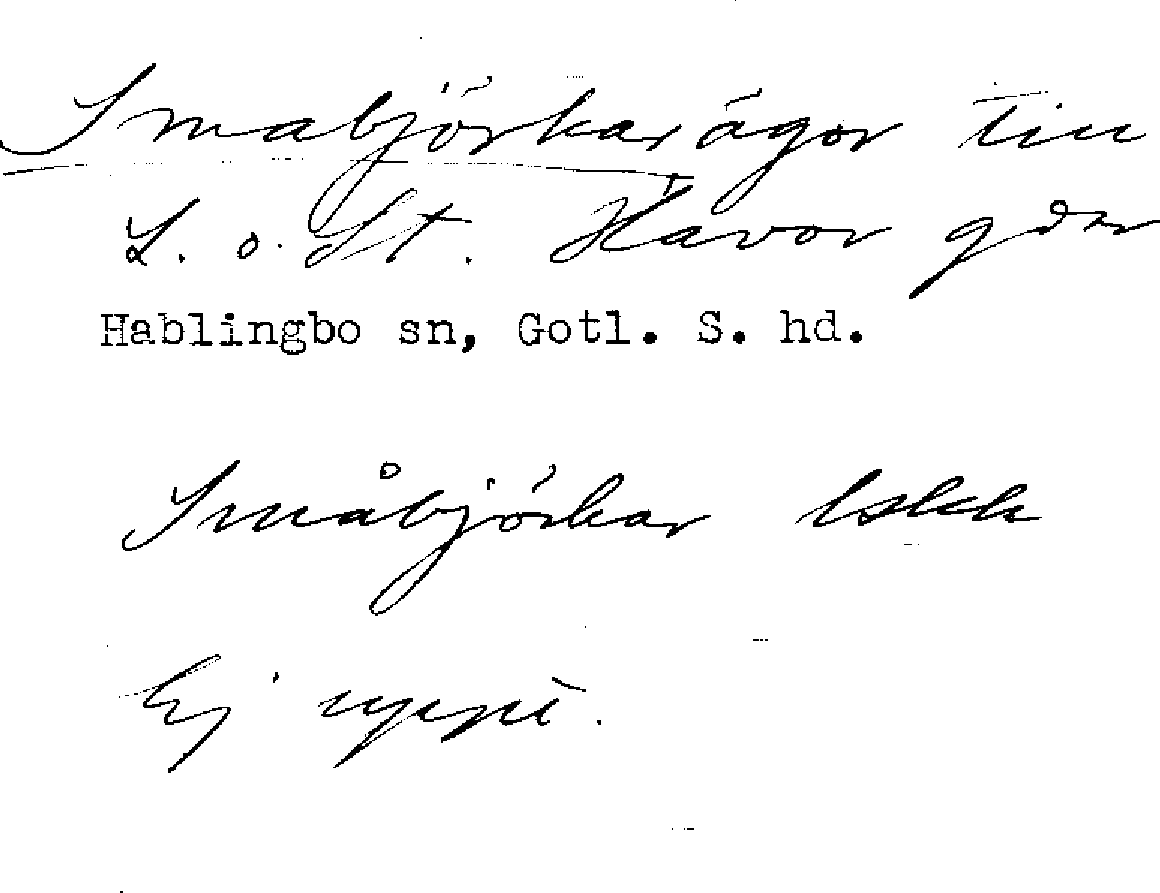 Småbjörkar, ägor till
L. o. St. Havor gdr
Hablingbo sn, Gotl. S. hd.
Småbjörkar
Ej uppt.